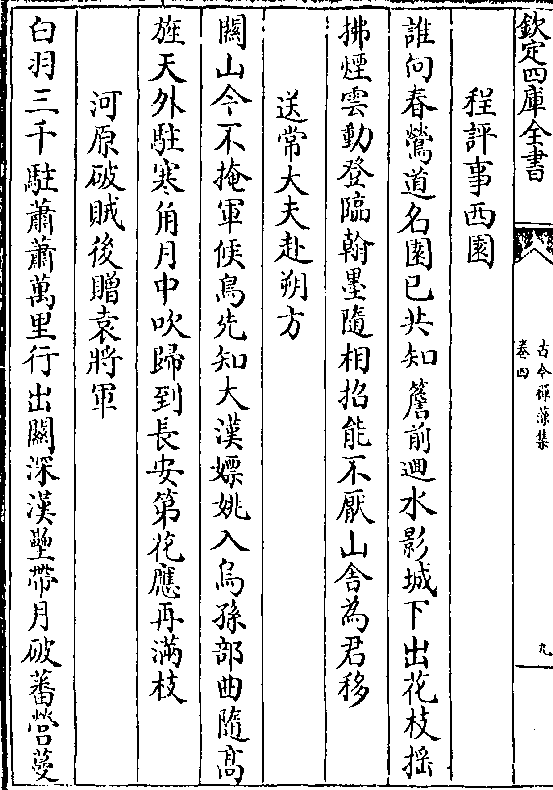 欽定四庫全書
古今禪藻集
卷四
九
程評事西園
誰向春鶯道名園已共知簷前迴水影城下出花枝揺
拂煙雲動登臨翰墨隨相招能不厭山舎為君移
送常大夫赴朔方
關山今不掩軍候鳥先知大漢嫖姚入烏孫部曲隨髙
旌天外駐寒角月中吹歸到長安第花應再滿枝
河原破賊後贈袁將軍
白羽三千駐蕭蕭萬里行出關深漢壘帶月破蕃營蔓